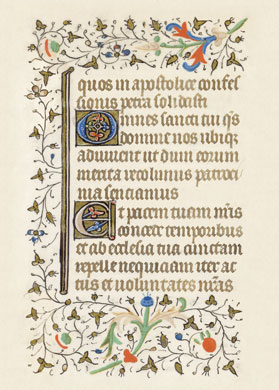 quos in apostolice confes
sionis petra solidasti
Omnes sancti tui q̄s
domine nos ubiq
adiuuent ut dum eorum
merita recolimus patroci
nia sentiamus
Et pacem tuam nr̄is
concede temporibus
et ab ecclesia tua cunctam
repelle nequiciam iter ac
tus et uoluntates nr̄as